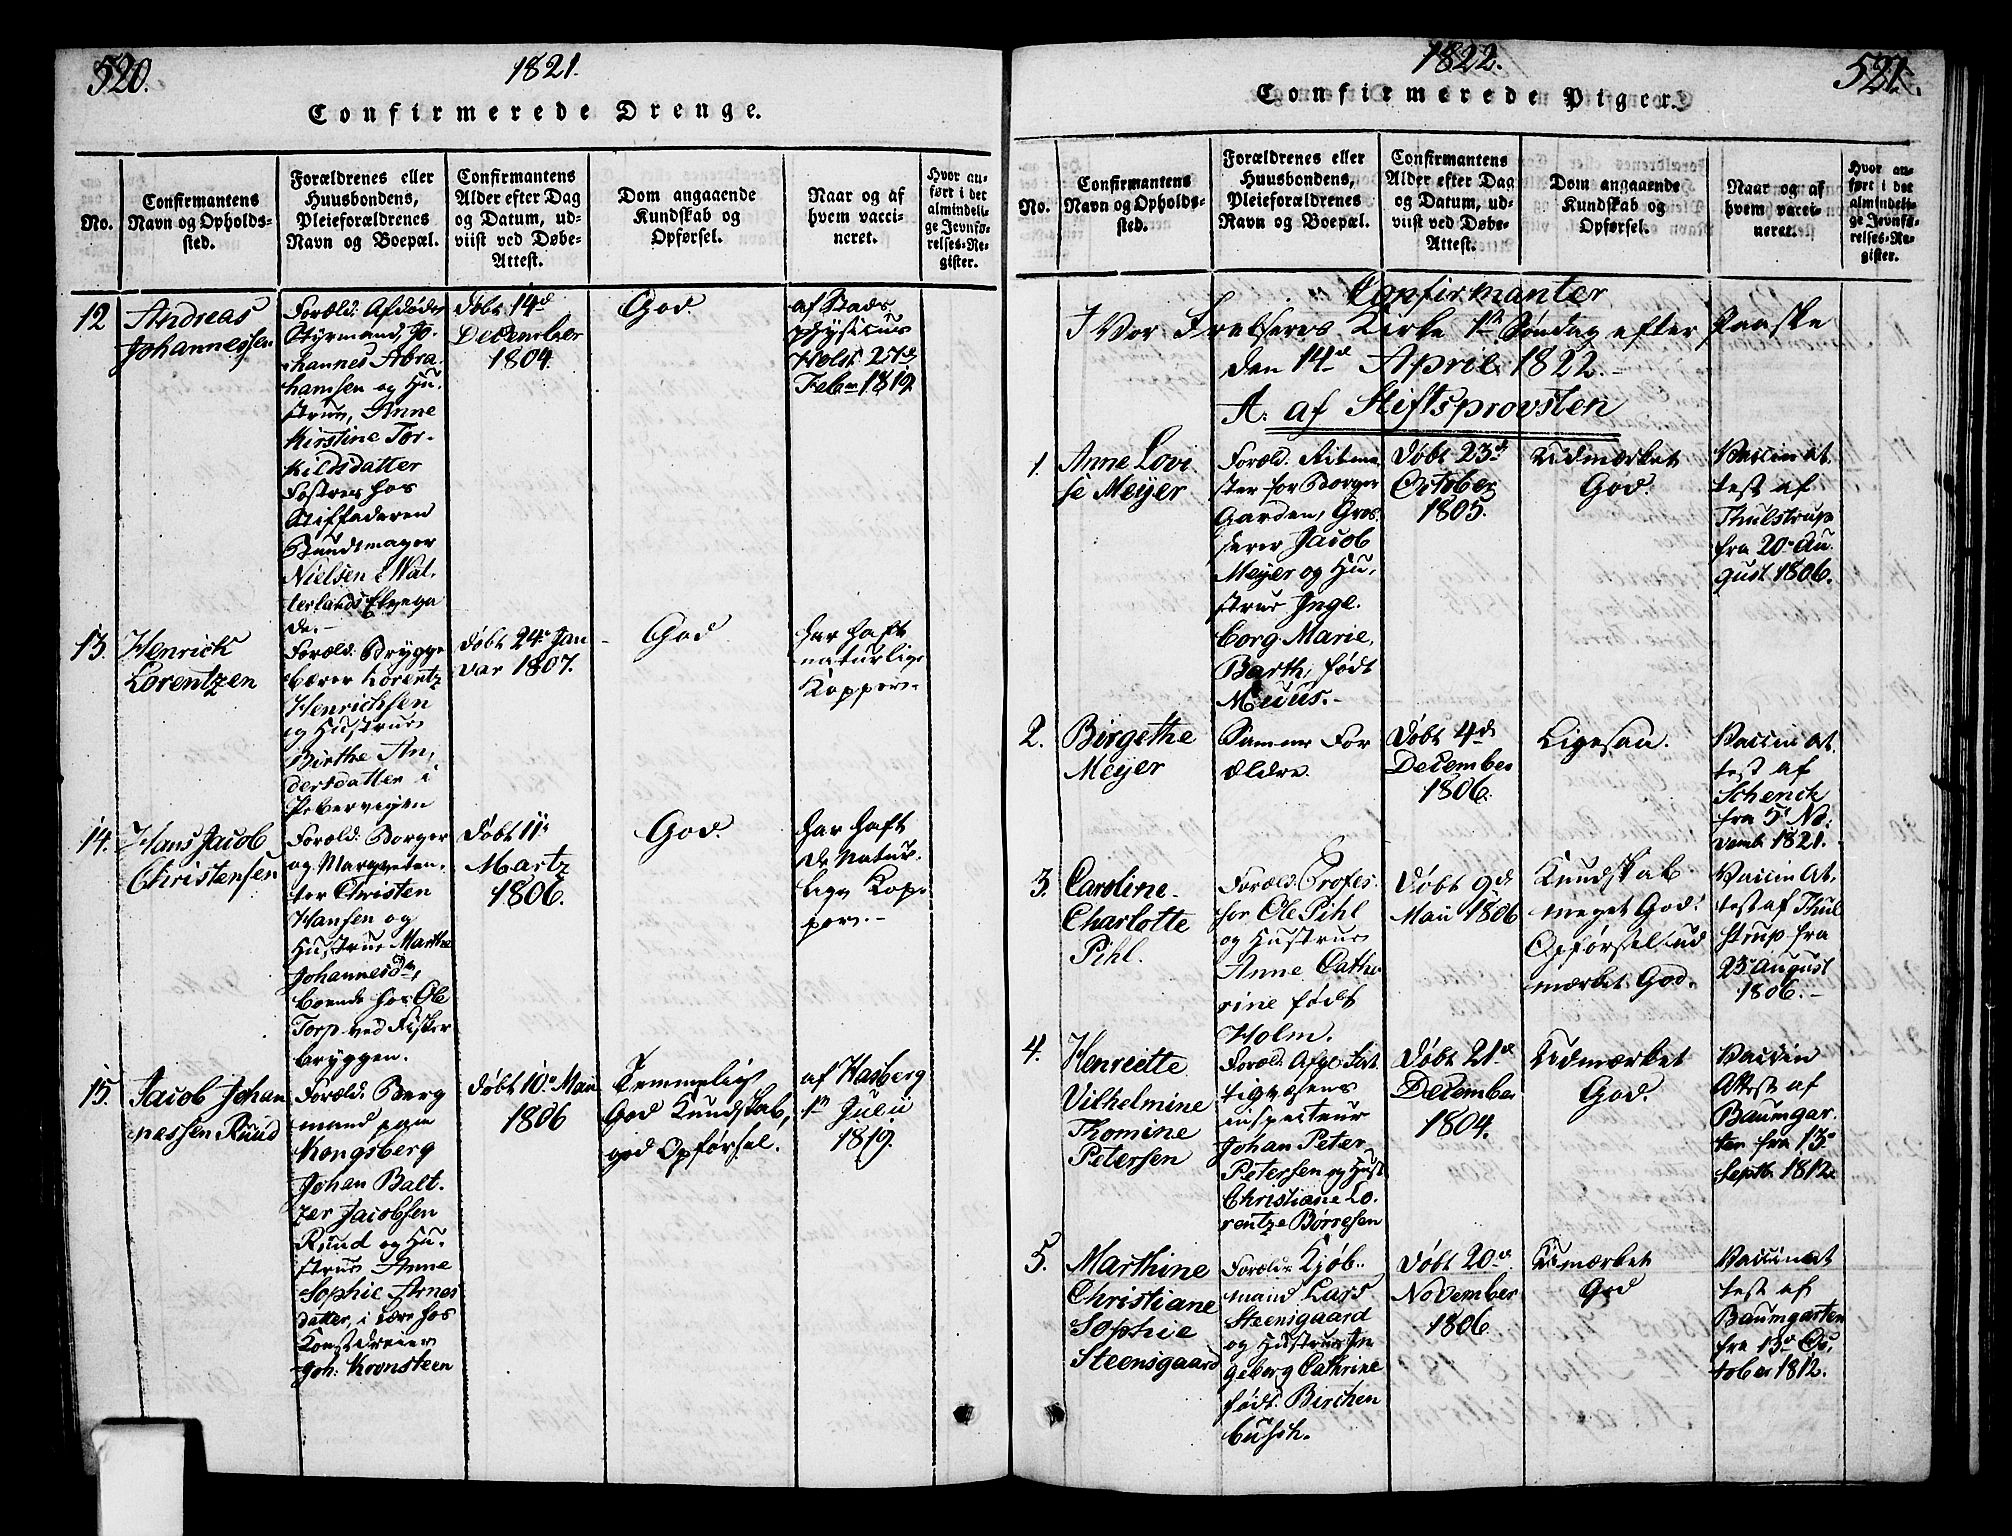 520.
1821.
Confirmerede Drenge.
No.
Confirmantens
Navn og Opholds-
sted.
Forældrenes eller
Huusbondens,
Pleieforældrenes
Navn og Boepæl.
Confirmantens
Alder efter Dag
og Datum, ud-
viist ved Døbe-
Attest.
Dom angaaende
Kundskab og
Opførsel.
Naar og af
hvem vacci-
neret.
Hvor an-
ført i det
almindeli-
ge Jevnfø-
relses-Re-
gister.
12
Andreas
Johannessen
Foræld: Afdøde
Styrmand Jo-
hannes Abra-
hamsen og Hu-
strue, Anne
Kirstine Tor-
kildsdatter
Fostres hos
Stiffaderen
Bundtmager
Nielsen i Vat-
terlands Elvega
de.-
Døbt 14d
December
1804.
God.
af Stads
physicus
Holst 27d
Febr. 1819.
13.
Henrick
Lorentzen
Foræld: Brygge
bærer Lorentz
Henrichsen
og Hustrue
Birthe An-
dersdatter i
Pebervigen
døbt 24. Jan-
var 1807.
God
har haft
naturlige
Kopper.-
14.
Hans Jacob
Christensen
Foræld: Borger
og Marqveten-
ter Christen
Hansen og
Hustrue Marthe
Johannesdr,
boende hos Ole
Torp ved Fisker
bryggen.
Døbt 11.
Martz
1806.
God.
har haft
de natur-
lige Kop-
per.-
15.
Jacob Johan
nessen Ruud
Foræld: Berg
mand paa
Kongsberg
Johan Balt-
zer Jacobsen
Ruud og Hu-
strue Anne
Sophie Arnes
datter, i lære hos
Kunstdreier
Joh: Kronsteen
døbt 10. Maii
1806
Temmelig
God Kundskab,
god Opførsel.
af Hasberg
1ste Julii
1819.
1822.
521.
Confirmerede Piger.
No.
Confirmantens
Navn og Opholds-
sted.
Forældrenes eller
Huusbondens,
Pleieforældrenes
Navn og Boepæl.
Confirmantens
Alder efter Dag
og Datum, ud-
viist ved Døbe-
Attest.
Dom angaaende
Kundskab og
Opførsel.
Naar og af
hvem vacci-
neret.
Hvor an-
ført i det
almindeli-
ge Jevnfø-
relses-Re-
gister.
Confirmanter
I Vor Frelsers Kirke 1ste Søndag efter Paaske
den 14de April 1822.
A. af Stiftsprovsten
1.
Anne Lovi
se Meyer
Foræld: Ritme-
ster for Borger
Garden, Gros-
serer Jacob
Meyer og Hu-
strue Inge-
borg Marie,
Barth, født
Meuus.-
Døbt 23d
October
1805.
Udmærket
God.
Vaccin At-
test af
Thulstrup
fra 20. Au-
gust 1806.
2.
Birgethe
Meyer
Samme For
ældre.
Døbt 4d
December
1806.
Ligesaa.
Vaccin At-
test af
Schenck
fra 5. No-
vemb. 1821.
3.
Caroline
Charlotte
Pihl.
Foræld: Profes-
sor Ole Pihl
og Hustrue
Anne Catha
rine født
Holm.
Døbt 9d
Maii 1806
Kundskab
meget God.
Opførsel ud
mærket God.
Vaccin At-
test af Thul
strup fra
23. August
1806.-
4.
Henriette
Vilhelmine
Thomine
Petersen
Foræld: Afg: Fat
tigvæsens
inspecteur
Johan Peter
Petersen og Hust.
Christiane Lo-
rentze Børresen
Døbt 21d
December
1804.
Udmærket
God.
Vaccin
Attest af
Baumgar-
ten fra 13.
Septb. 1812.
5.
Marthine
Christiane
Sophie
Steensgaard
Foræld: Kjøb-
mand Lars
Steensgaard
og Hustrue In
geborg Cathrine
født Birchen
busch.
Døbt 20d
November
1806.
Udmærket
God
Vaccin at
test af
Baumgarten
fra 13. Oc-
tober 1812.